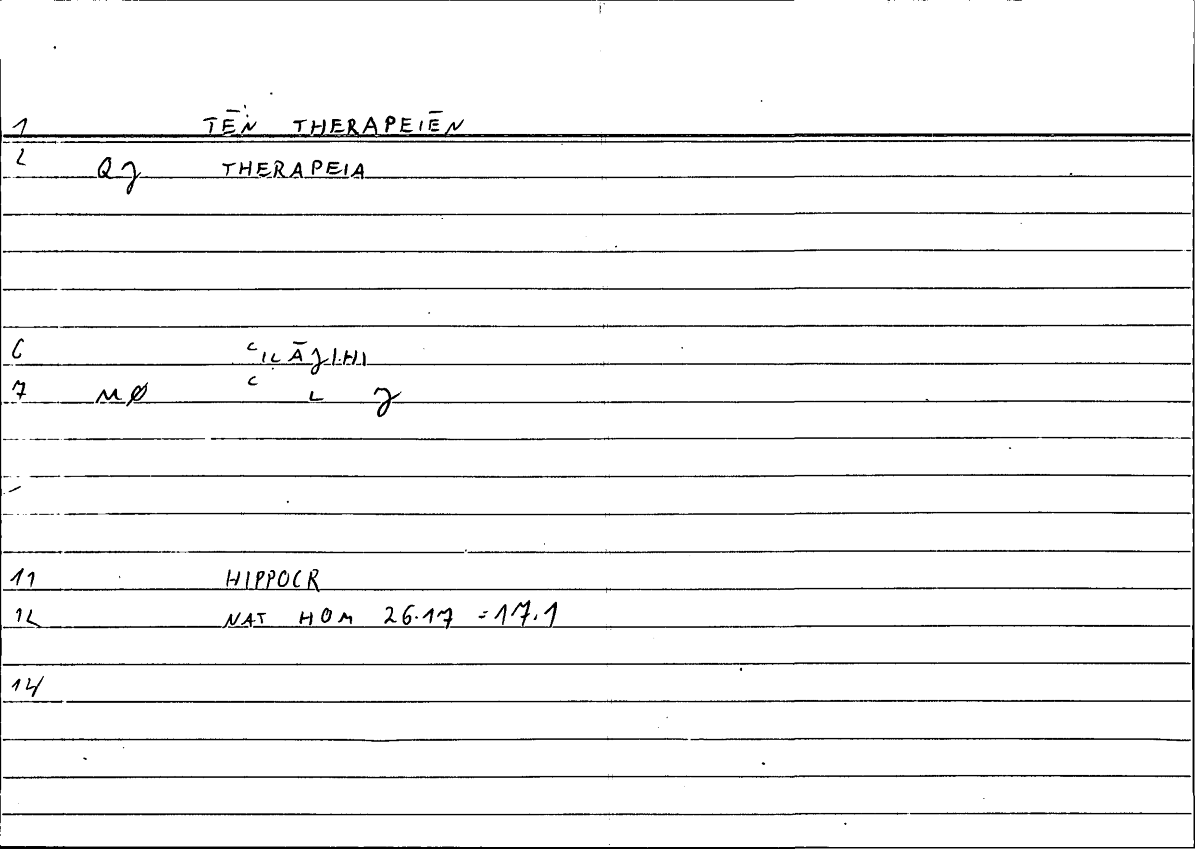 1 TĒN THERAPEIĒN
2 Qʒ THERAPEIA
6 ʿILĀʒIHI
7 MØ ʿ L ʒ
11 HIPPOCR
12 NAT HOM 26.17 =17.1
14